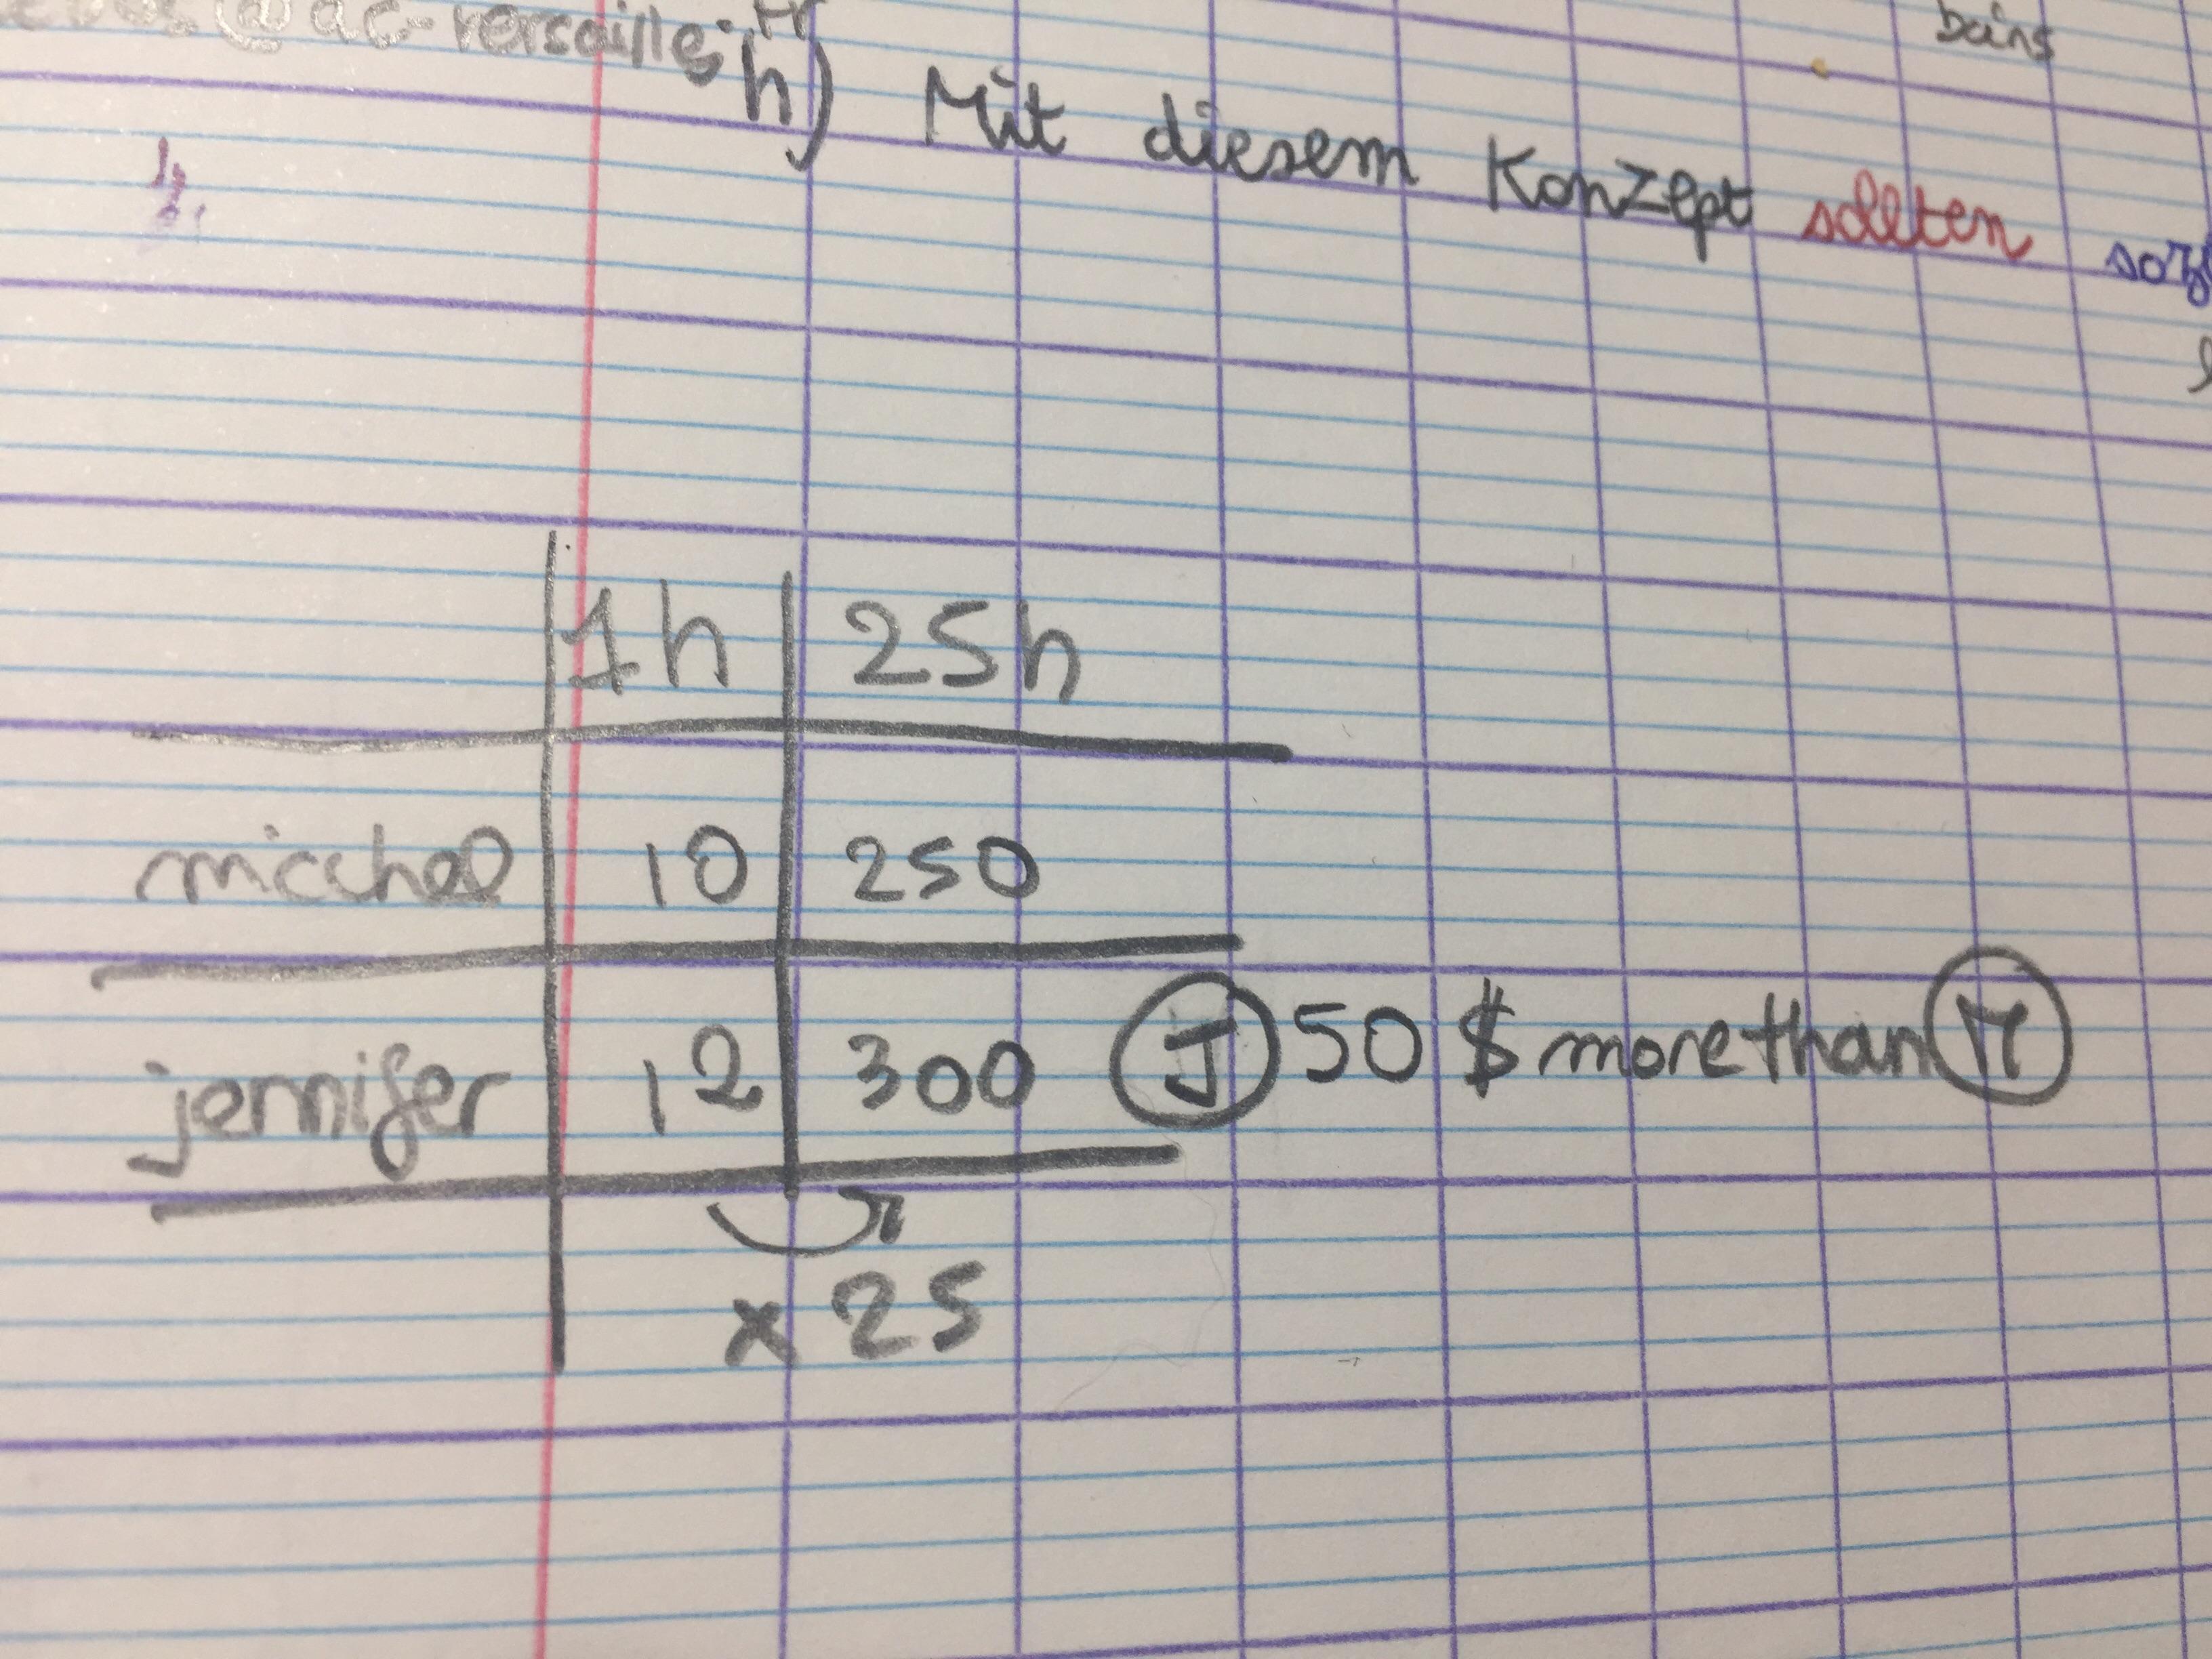 @ac-versailles.fr
bains
h) Mit diesem Konzept sollten
1h 25h
micchael 10 250
jennifer 12 300 J 50 $ more than M
x 25